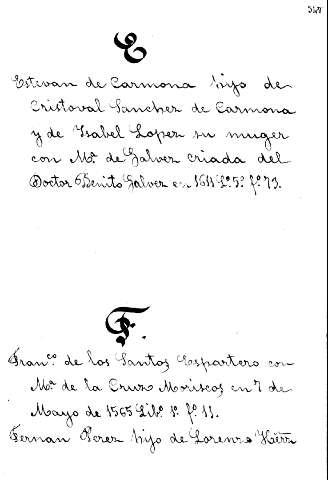 E
Estevan de Carmona hijo de
Cristoval Sanchez de Carmona
y de Ysabel Lopez su muger
con Mª de Galvez criada del
Doctor Benito Galvez en 1611 Lº 5º fº 73.
F.
Franco de los Santos Espartero con
Mª de la Cruz Moriscos en 7 de
Mayo de 1565 Libº 1º fº 11.
Fernan Perez hijo de Lorenzo